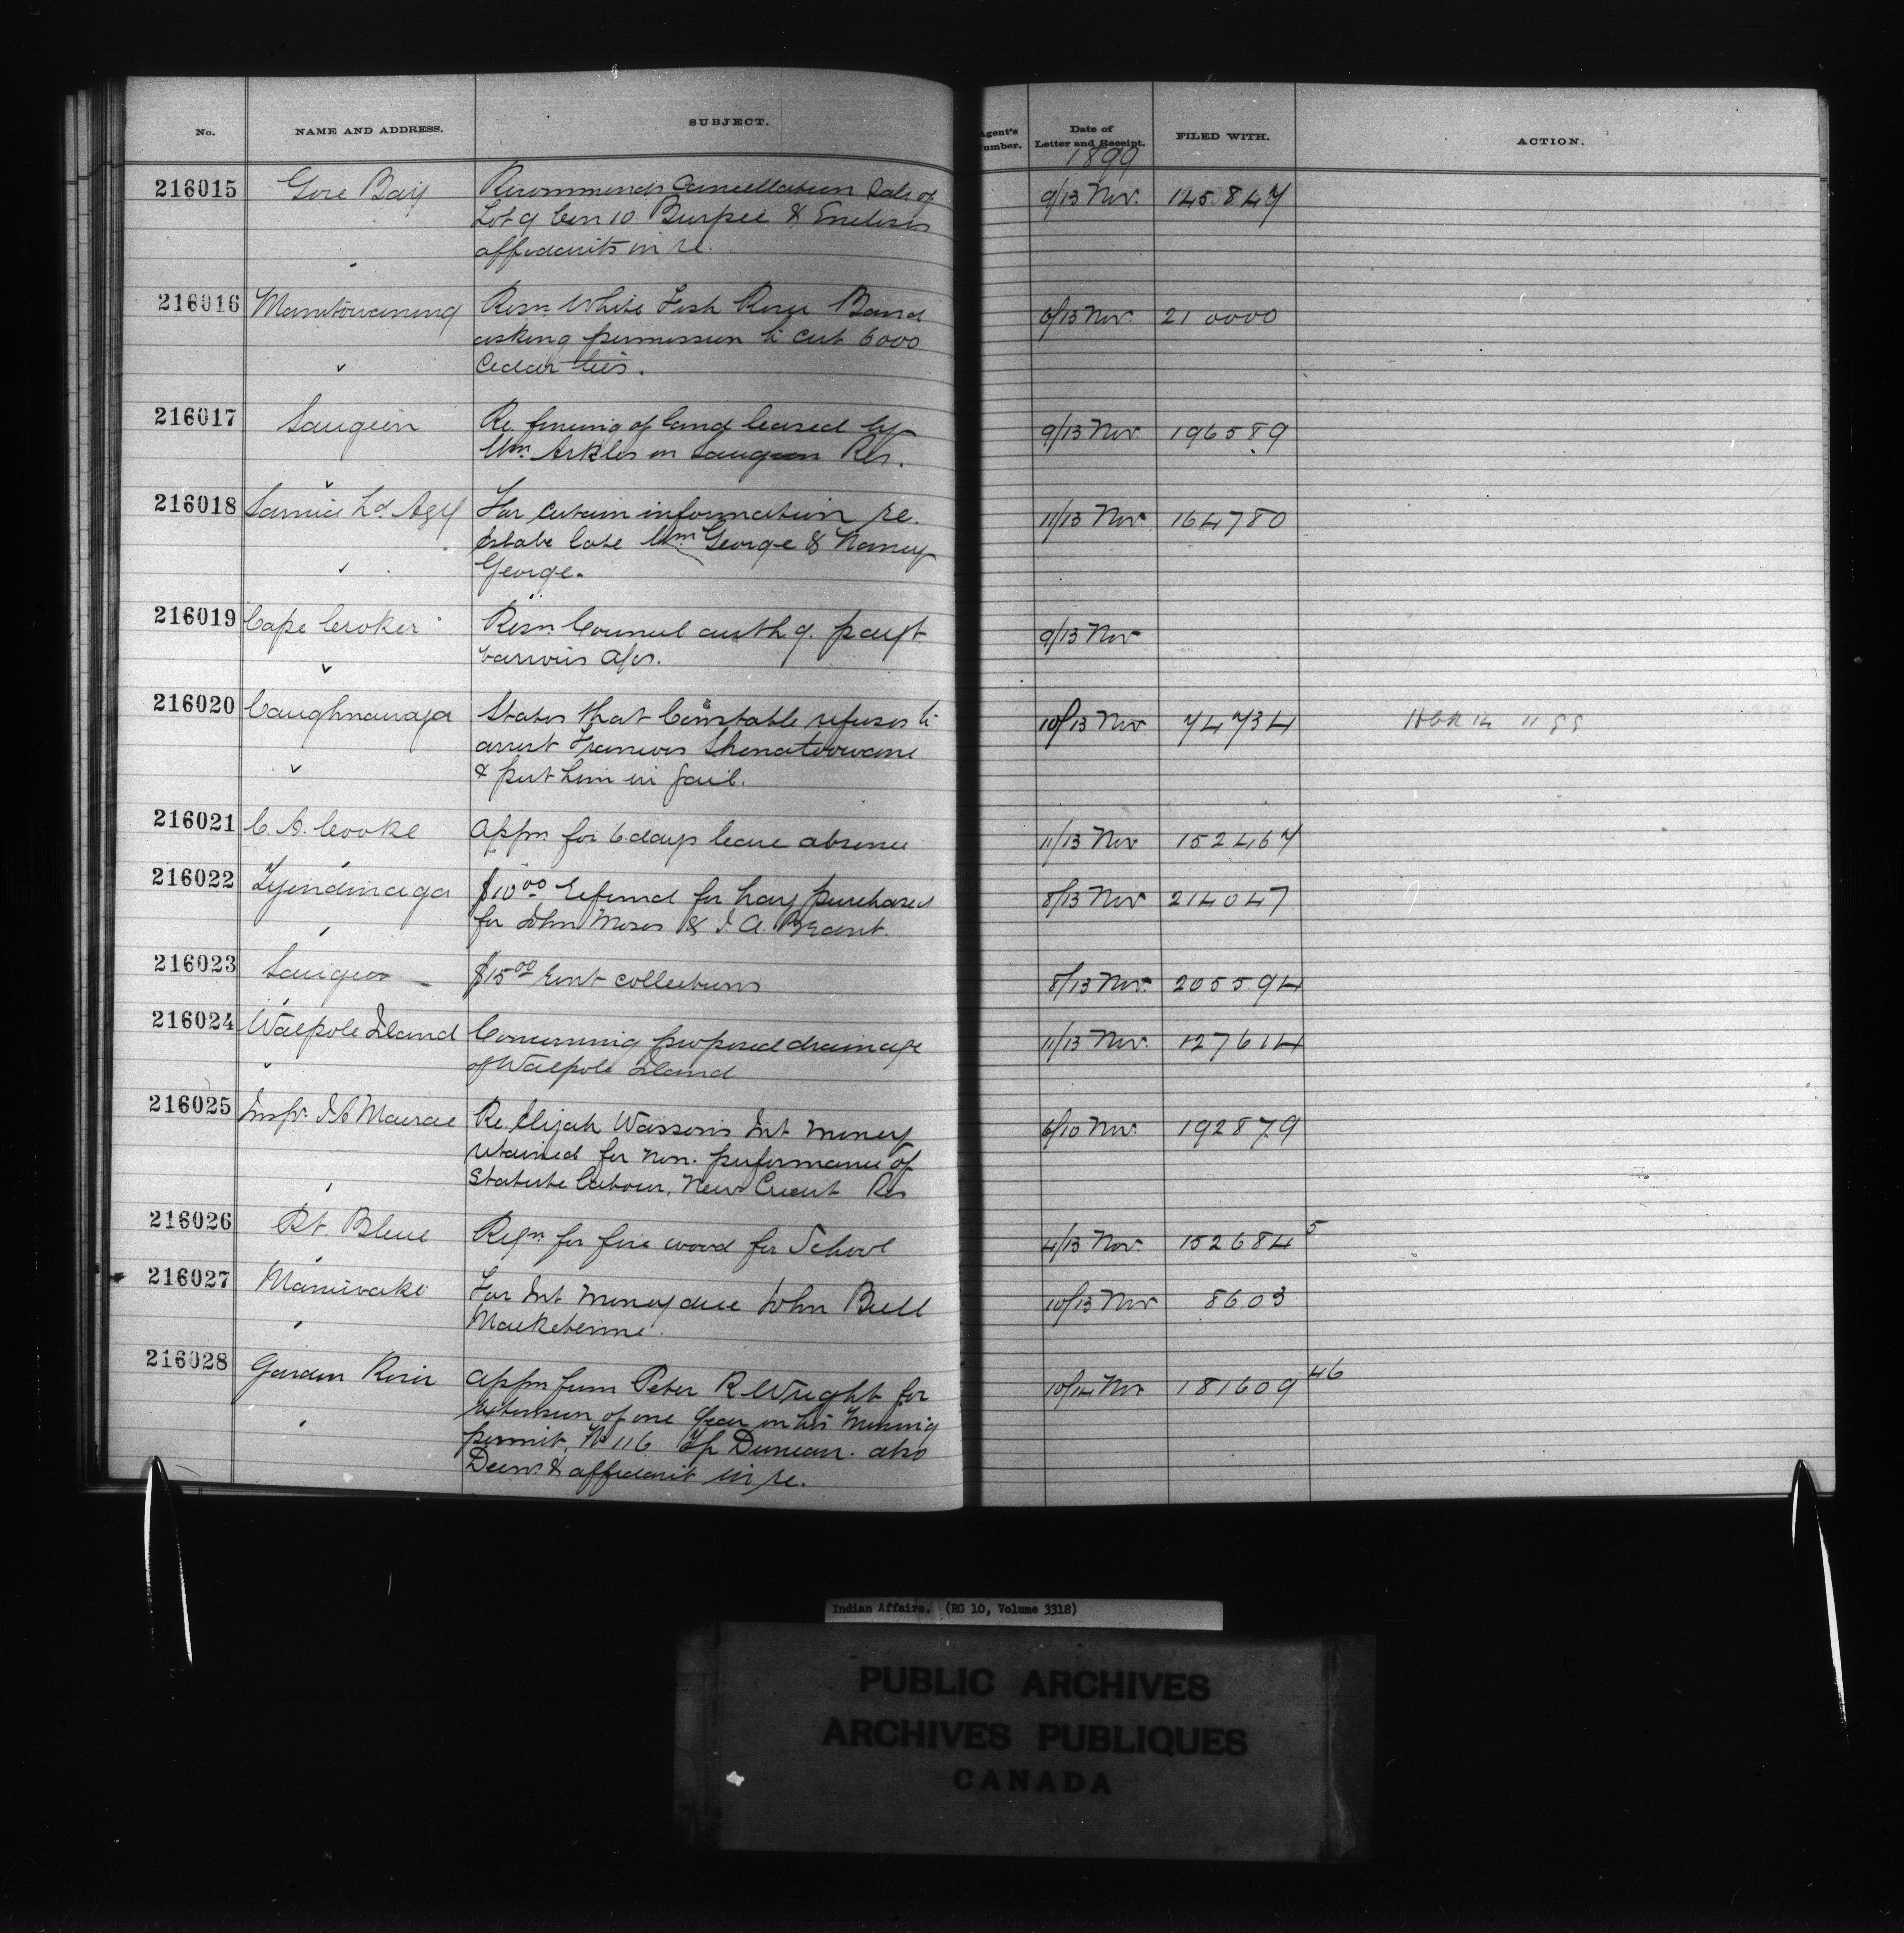 No. NAME AND ADDRESS. SUBJECT. Agent's Number. Date of Letter and Receipt. FILED WITH. ACTION.
1899
216015 Gore Bay Recommends Cancellation Sale of 9/13 Nov. 145847
Lot 9 Con 10 Burpee & Encloses
affidavits in re.
216016 Manitowaning Resn. White Fish River Band 6/13 Nov. 210000
asking permission to cut 6000
Cedar ties.
216017 Saugeen Re fencing of land leased by 9/13 Nov 196589
Wm. Arkles on Saugeen Res.
216018 Sarnia Ld. Agy For certain information re. 11/13 Nov. 164780
Estate late Wm George & Nancy
George.
216019 Cape Croker Resn. Council authg. payt 9/13 Nov
various a/cs.
216020 Caughnawaga States that Constable refuses to 10/13 Nov 74734
arrest Francois
& put him in jail.
216021 C. A. Cooke Appn. for 6 days leave absence 11/13 Nov 152467
216022 Tyendinaga $10.00 refund for hay purchased 8/13 Nov 214047
for John Moses & J. A. Brant.
216023 Saugeen $15.00 rent collections 8/13 Nov. 205594
216024 Walpole Island Concerning proposed drainage 11/13 Nov. 127614
of Walpole Island
216025 Inspr. J A Macrae Re. Elijah Wasson's Int money 6/10 Nov. 192879
retained for non. performance of
Statute labour, New Credit Res
216026 Pt. Bleue Reqn for fire wood for School 4/13 Nov. 152684 5
216027 Maniwaki For Int money due John Bull 10/13 Nov 8603
216028 Garden River Appn from Peter R Wright for 10/14 Nov 181609 46
extension of one year on his mining
permit. No 116 Tp Duncan. also
Decn. & affidavit in re.
Indian Affairs. (RG 10, Volume 3318)
PUBLIC ARCHIVES
ARCHIVES PUBLIQUES
CANADA